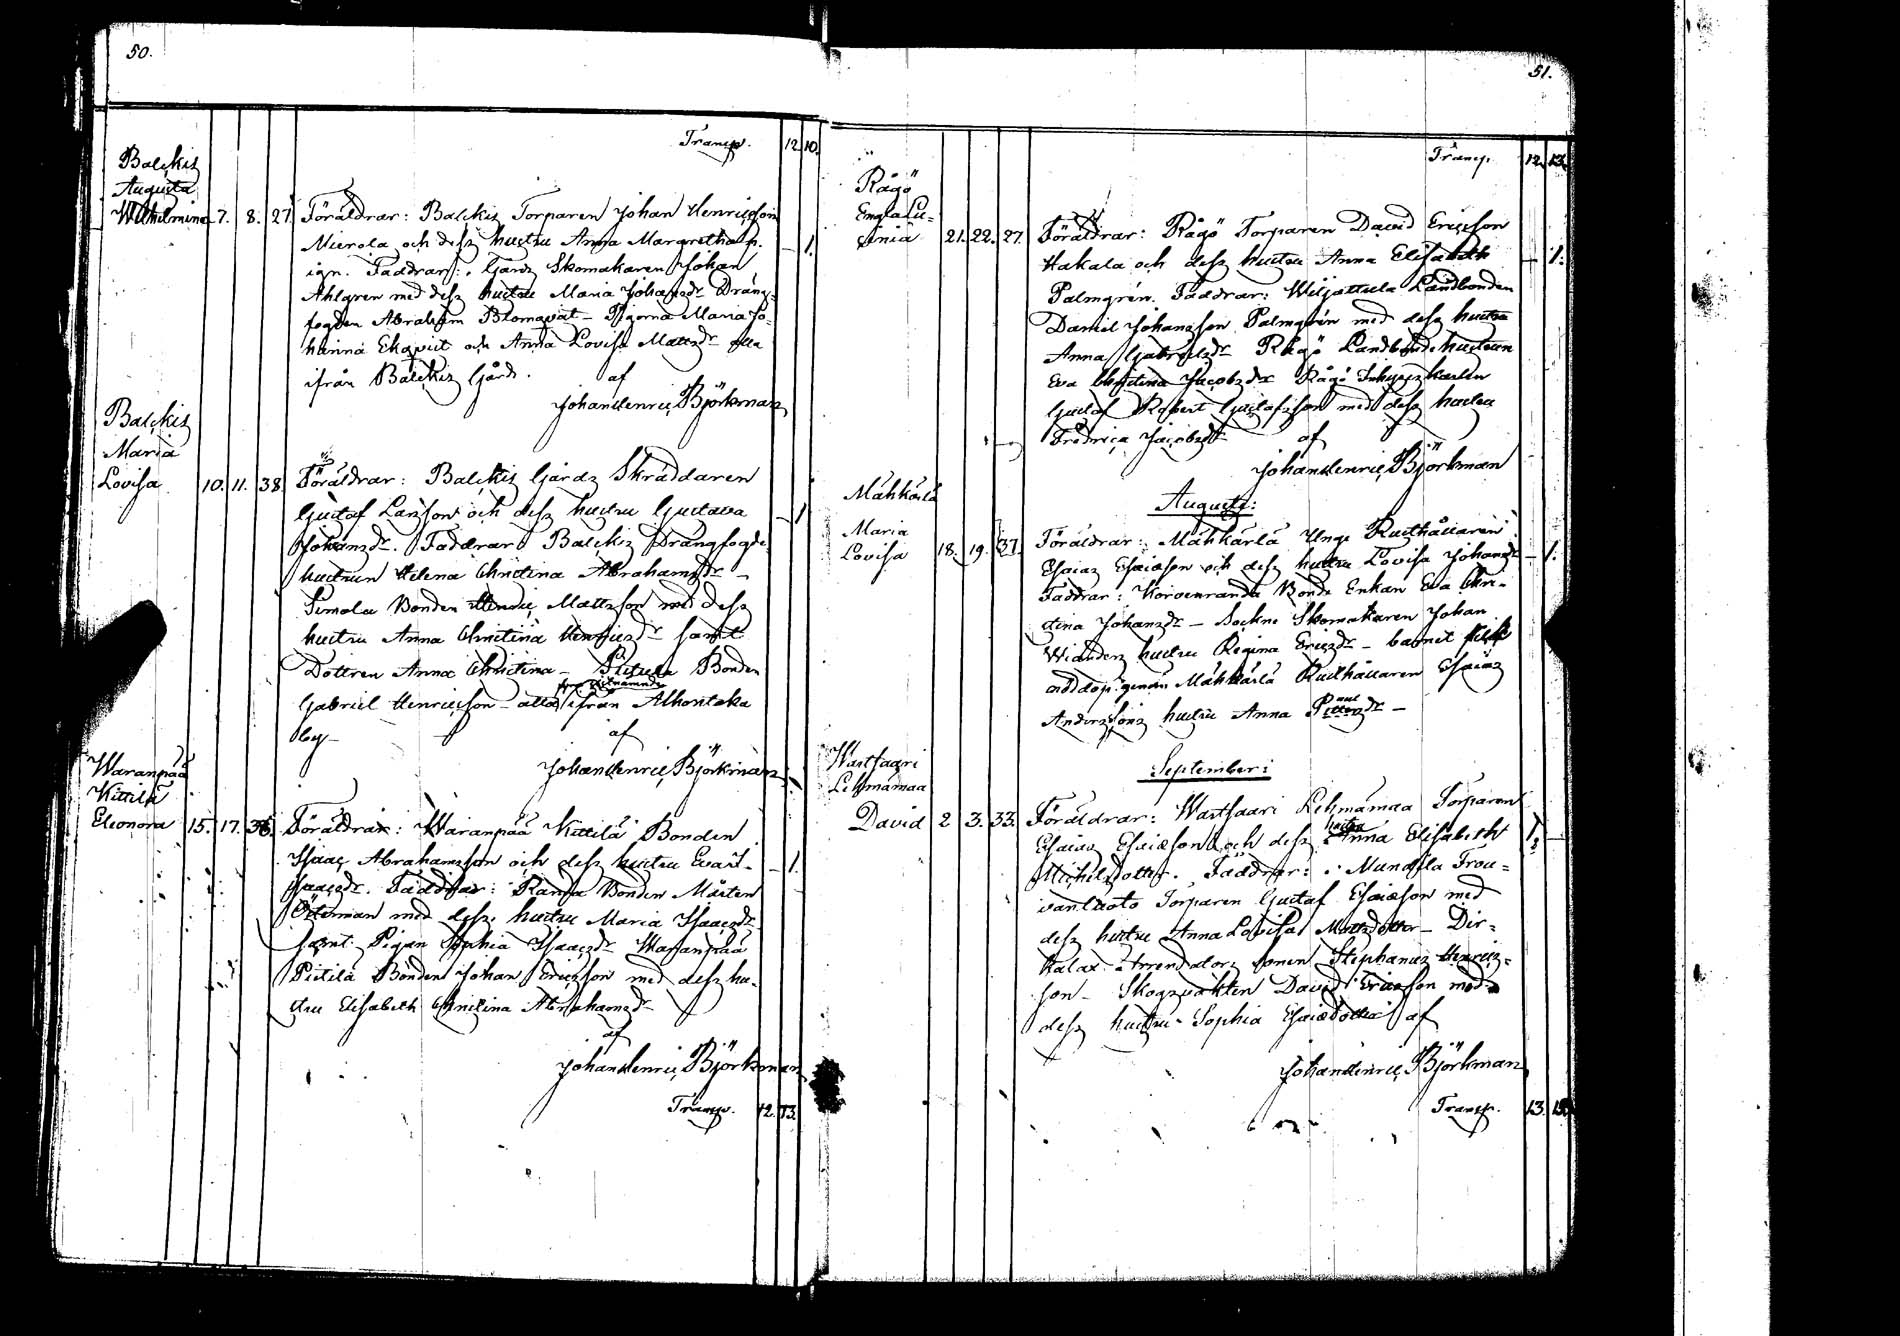 50.
Transp. 12 10.
Balckis
Augusta
Wilhelmina 7. 8. 27. Föräldrar: Balckis Torparen Johan Henricsson
Mierola och dess hustru Anna Margretha
ign. Faddrar: Gårds Skomakaren Johan
Ahlgren med dess hustru Maria Johansdr Dräng-
fogden Abraham Blomqvist – Pigorna Maria Jo-
hanna Ekqvist och Anna Lovisa Mattsdr alla
ifrån Balckis Gård. af
Johan Henric Björkman
Balckis
Maria
Lovisa 10. 11. 38. Föräldrar: Balckis Gårds Skräddaren
Gustaf Larsson och dess hustru Gustava
Johansdr. Faddrar Balckis Drängfogde
hustrun Helena Christina Abrahamsdr –
Simola Bonden Henric Mattsson med dess
hustru Anna Christina Henricsdr samt
Dottren Anna Christina – Bonden
Gabriel Henricsson – alla ifrån Alhontaka
by – af
Johan Henric Björkman
Waranpää
Kittilä
Eleonora 15. 17. 36. Föräldrar: Waranpää Kittilä Bonden
Isaac Abrahamsson och dess hustru Eva
Isaacsdr. Faddrar: Rama Bonden Mårten
Österman med dess hustru Maria Isaacsdr
samt Pigan Sophia Isaacsdr Waranpää
Pietilä Bonden Johan Ericsson med dess hu-
stru Elisabeth Christina Abrahamsdr
af
Johan Henric Björkman
Transp. 12. 13.
51.
Transp. 12. 13.
Rågö
Engla Lu-
sinia 21. 22. 27. Föräldrar: Rågö Torparen David Ericsson
Hakala och dess hustru Anna Elisabeth – 1.
Palmgrén. Faddrar: Wiljattula Landbonden
Daniel Johansson Palmgrén med dess hustru
Anna Gabrielsdr Rågö Landbonde hustrun
Eva Christina Jacobsdr Rågö Inhyseskarlen
Gustaf Robert Gustafsson med dess hustru
Fredrica Jacobsdr af
Johan Henric Björkman
Augusti:
Mähkärlä
Maria
Lovisa 18. 19. 37. Föräldrar: Mähkärlä Unge Rusthållaren
Esaias Esaiæson och dess hustru Lovisa Johansdr – 1.
Faddrar: Korvenranda Bonde Enkan Eva Chri-
stina Johansdr – Sockne Skomakaren Johan
Wianders hustru Regina Ericsdr – barnet fick
nöddop genom Mähkärlä Rusthållaren Esaias
Anderssons hustru Anna Paulsdr –
September:
Wartsaari
Lehmämaa
David 2 3. 33. Föräldrar: Wartsaari Lehmämaa Torparen
Esaias Esaiæson och dess hustru Anna Elisabeth 1. –
Michelsdotter. Faddrar: Mundila Trou-
vanluoto Torparen Gustaf Esaiæson med
dess hustru Anna Lovisa Mattsdotter – Dir-
kalax Arrendators sonen Stephanus Henrics-
son – Skogsvakten David Ericsson med
dess hustru Sophia Esaiædotter af
Johan Henric Björkman
Transp. 13. 15.